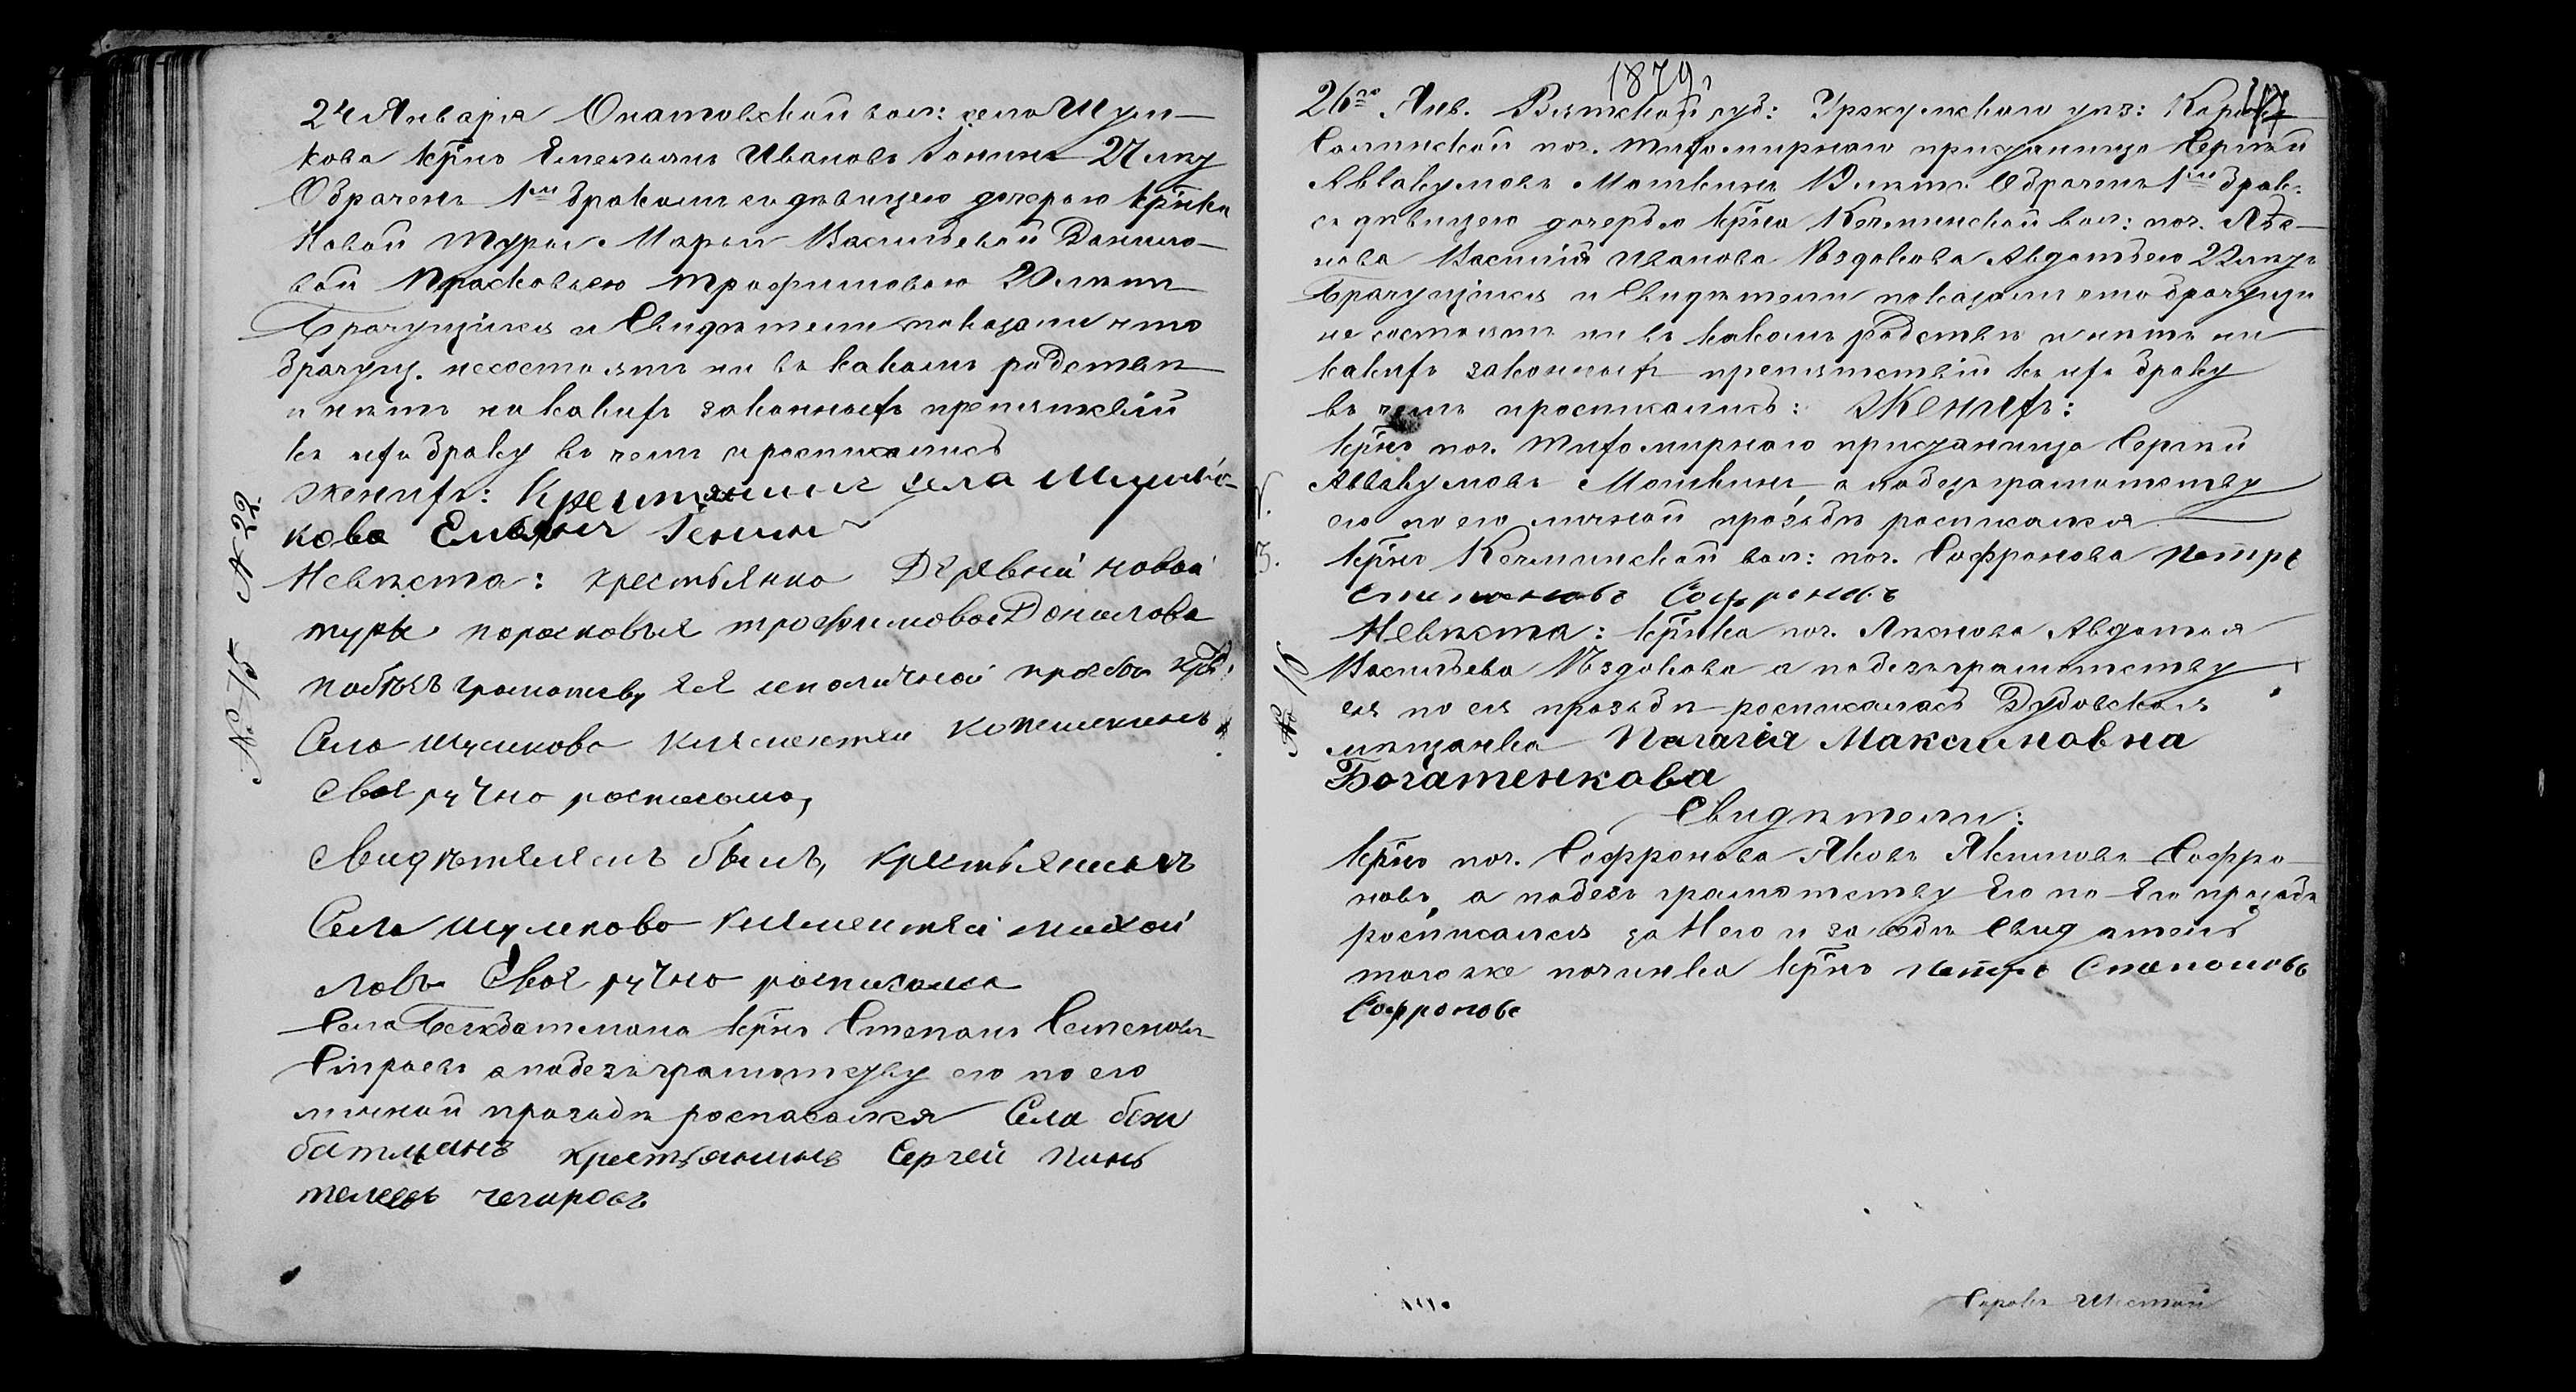 24 Января Онатовской вол: села Шум-
кова кр̃нъ Емельянъ Ивановъ Генинъ 27 лѣтъ
Обрачень 1мъ бракомъ съ дѣвицею дочерью кр̃нки
Новой Туры Марьи Васильевой Данило-
вой Прасковьею Трофимовою 20 лѣтъ
Брачущіися и Свидѣтели показали что
брачущ. несостоятъ ни въ какомъ родствѣ
и нѣтъ никакихъ законныхъ препятствій
къ ихъ браку въ чемъ и росписались
Женихъ: Крестянинъ села Шумь-
кова Емелянъ Генинъ
№ 22.
Невѣста: крестьянка Деревни новой
туры парасковья трофимова Данилова
№ 15
побезъ грамотству ея иполичной прозбы кр̃ь:
Села шумково
Своеручно росписался,
Свидѣтелемъ былъ, крестьянинъ
Села шумково Климентей михай
ловъ Своеручно росписался
Села Бекбатмана кр̃нъ Степанъ Семеновъ
а побезъ грамотству его по его
личной прозьбѣ росписался Села бек
батманъ крестьянинъ Сергей панъ
телеевъ чегаровъ
1879 г.
117
26го Янв. Вятской губ: Уржумскаго уѣз: Кара-
Салинской поч. Тихомирнаго пристанища Сергѣй
Аввакумовъ Мошкинъ лѣтъ Обрачень 1мъ брак:
съ дѣвицею дочерью кр̃на Кичминской вол: поч.
Василія Иванова Поздокова Авдотьею 22 лѣтъ
Брачущіися и Свидѣтели показали что брачущи
не состоятъ ни въ какомъ родствѣ и нѣтъ ни
какихъ законныхъ препятствій къ ихъ браку
въ чемъ просписались: Женихъ:
кр̃нъ поч. Тихомирнаго пристанища Сергѣй
Аввакумовъ Мошкинъ, а побезъ грамотству
его по его личной прозьбѣ росписался
кр̃нъ Кичминской вол: поч. Софронова Петръ
Степановъ Софроновъ
Невѣста: кр̃нка поч. Авдотья
Васильева Поздокова а побезъграмотству
ея по ея прозьбѣ росписалась Дубовская
№ 16
мѣщанка Пелагія Максимовна
Богатенкова
Свидѣтели:
кр̃нъ поч. Софронова Яковъ Якимовъ Софро-
новъ, а побезъ грамотству Его по Его прозьбѣ
росписался за Него и за себя Свидѣтель
того же починка кр̃нъ Петръ Степановъ
Софроновъ